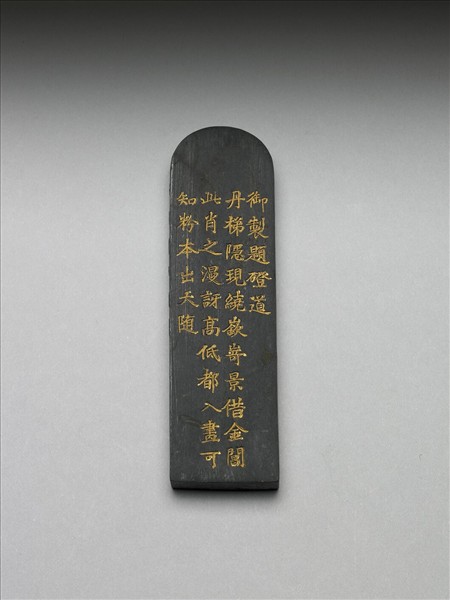 御製題磴道
丹梯隱現繞嶔㟢景借金閶
此肖之漫訝髙低都入畫可
知粉本出天隨